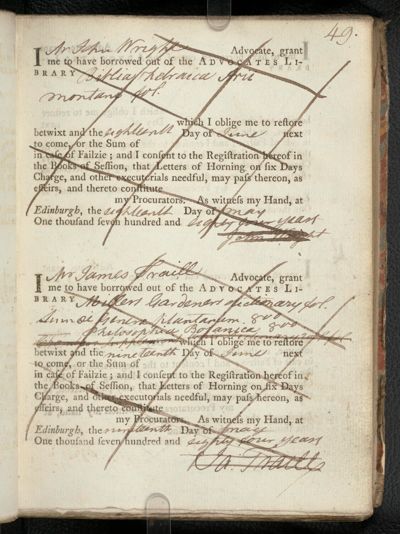 49.
I Mr John Wright Advocate, grant
me to have borrowed out of the ADVOCATES LI-
BRARY Biblia hebraica Ariæ
montani fol.
which I oblige me to restore
betwixt and the eighteenth Day of June next
to come, or the Sum of
in case of Failzie; and I consent to the Registration hereof in
the Books of Session, that Letters of Horning on six Days
Charge, and other executorials needful, may pass thereon, as
effeirs, and thereto constitute
my Procurators. As witness my Hand, at
Edinburgh, the eighteenth Day of may
One thousand seven hundred and eighty four years
John Wright
I Mr James Traill Advocate, grant
me to have borrowed out of the ADVOCATES LI-
BRARY Millers Gardeners dictionary fol.
Genera plantarum. 8vo
Philosophia Botanica, 8vo
which I oblige me to restore
betwixt and the nineteenth Day of June next
to come, or the Sum of
in case of Failzie; and I consent to the Registration hereof in
the Books of Session, that Letters of Horning on six Days
Charge, and other executorials needful, may pass thereon, as
effeirs, and thereto constitute
my Procurators. As witness my Hand, at
Edinburgh, the nineteenth Day of may
One thousand seven hundred and eighty four years
Ja Traill